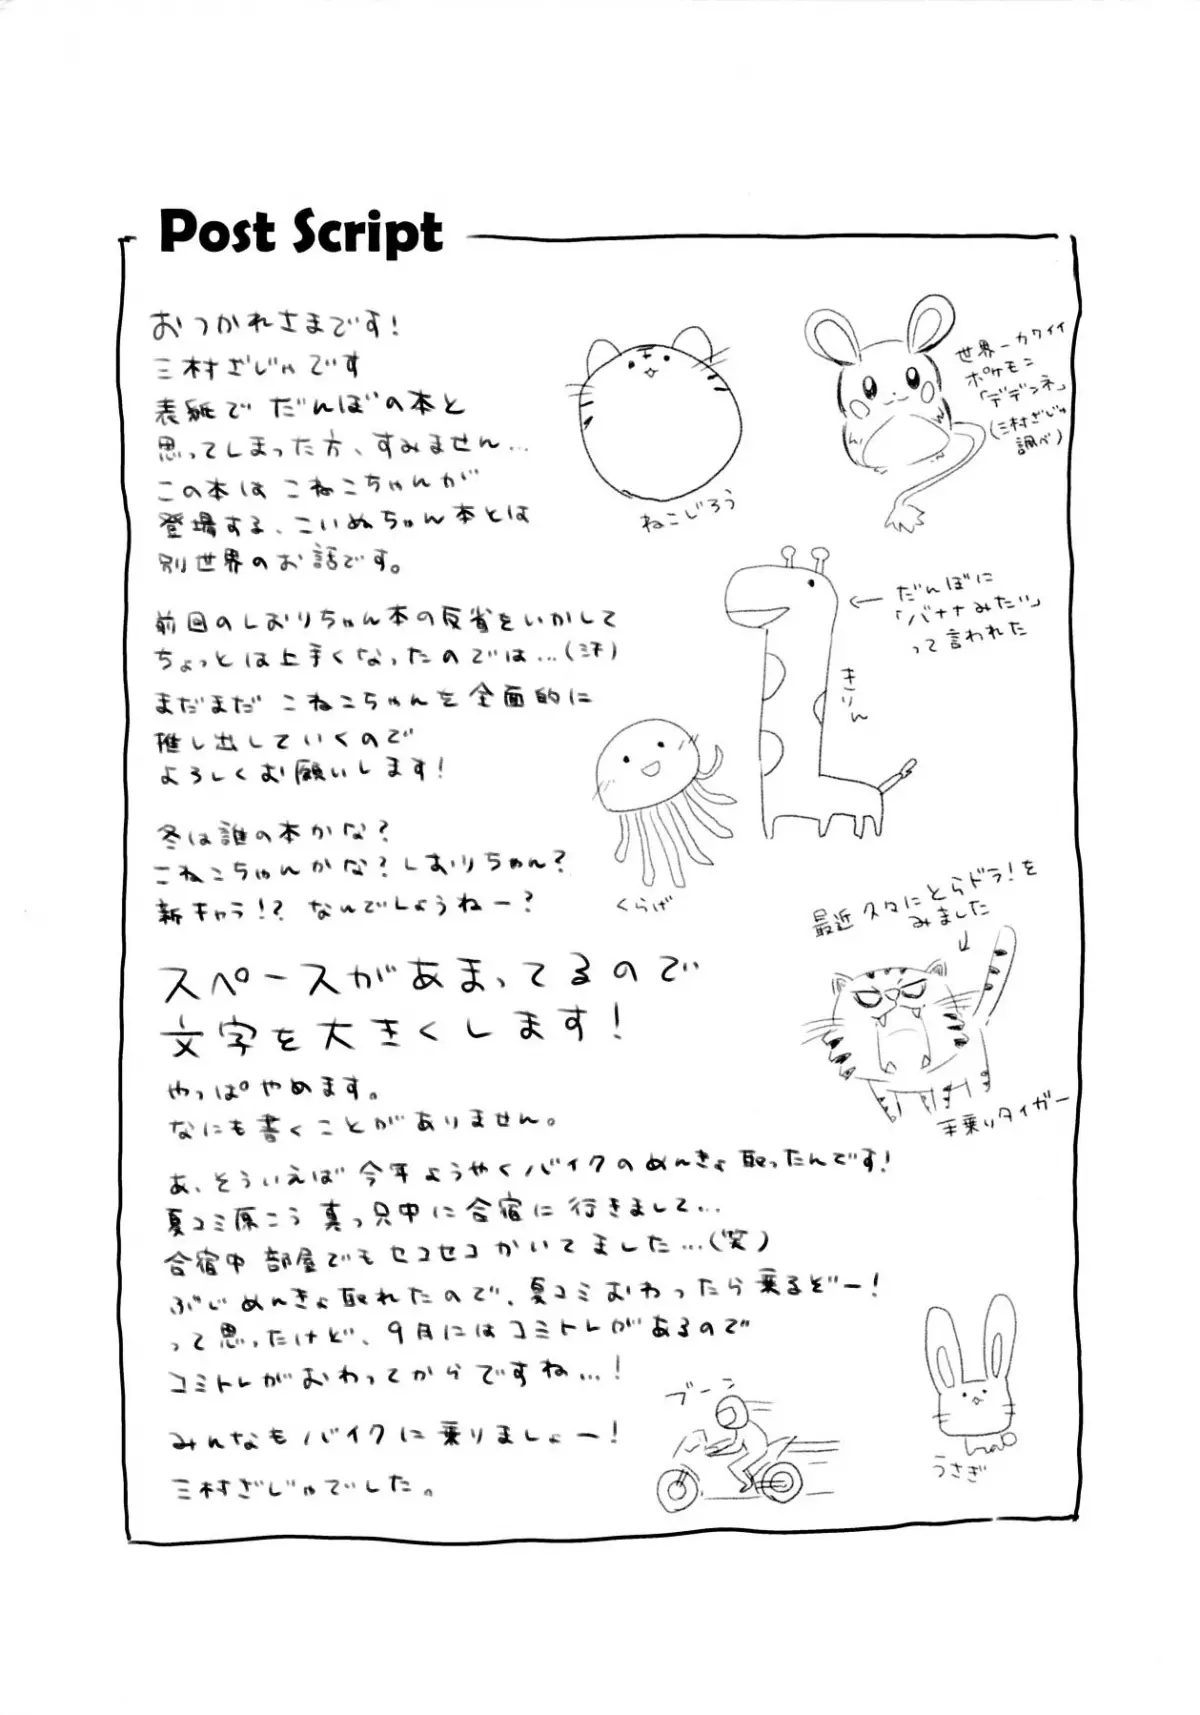 Post Script
おつかれさまです!
三村ざじゅです
表紙で だんぼの本と
思ってしまった方、すみません…
この本は こねこちゃんが
登場する、こいぬちゃん本とは
別世界のお話です。
前回のしおりちゃん本の反省をいかして
ちょっとは上手くなったのでは…(汗)
まだまだ こねこちゃんを全面的に
推し出していくので
よろしくお願いします!
冬は誰の本かな?
こねこちゃんかな?しおりちゃん?
新キャラ!? なんでしょうねー?
スペースがあまってるので
文字を大きくします!
やっぱやめます。
なにも書くことがありません。
あ、そういえば 今年ようやくバイクのめんきょ取ったんです!
夏コミ原こう 真っ只中に合宿に行きまして…
合宿中 部屋でもセコセコかいてました…(笑)
ぶじめんきょ取れたので、夏コミおわったら乗るぞー!
って思ったけど、9月にはコミトレがあるので
コミトレがおわってからですね…!
みんなもバイクに乗りましょー!
三村ざじゅでした。
ねこじろう
世界一カワイイ
ポケモン
「デデンネ」
(三村ざじゅ
調べ)
← だんぼに
「バナナみたい」
って言われた
きりん
くらげ
最近 久々にとらドラ!を
みました
↓
手乗りタイガー
ブーン
うさぎ